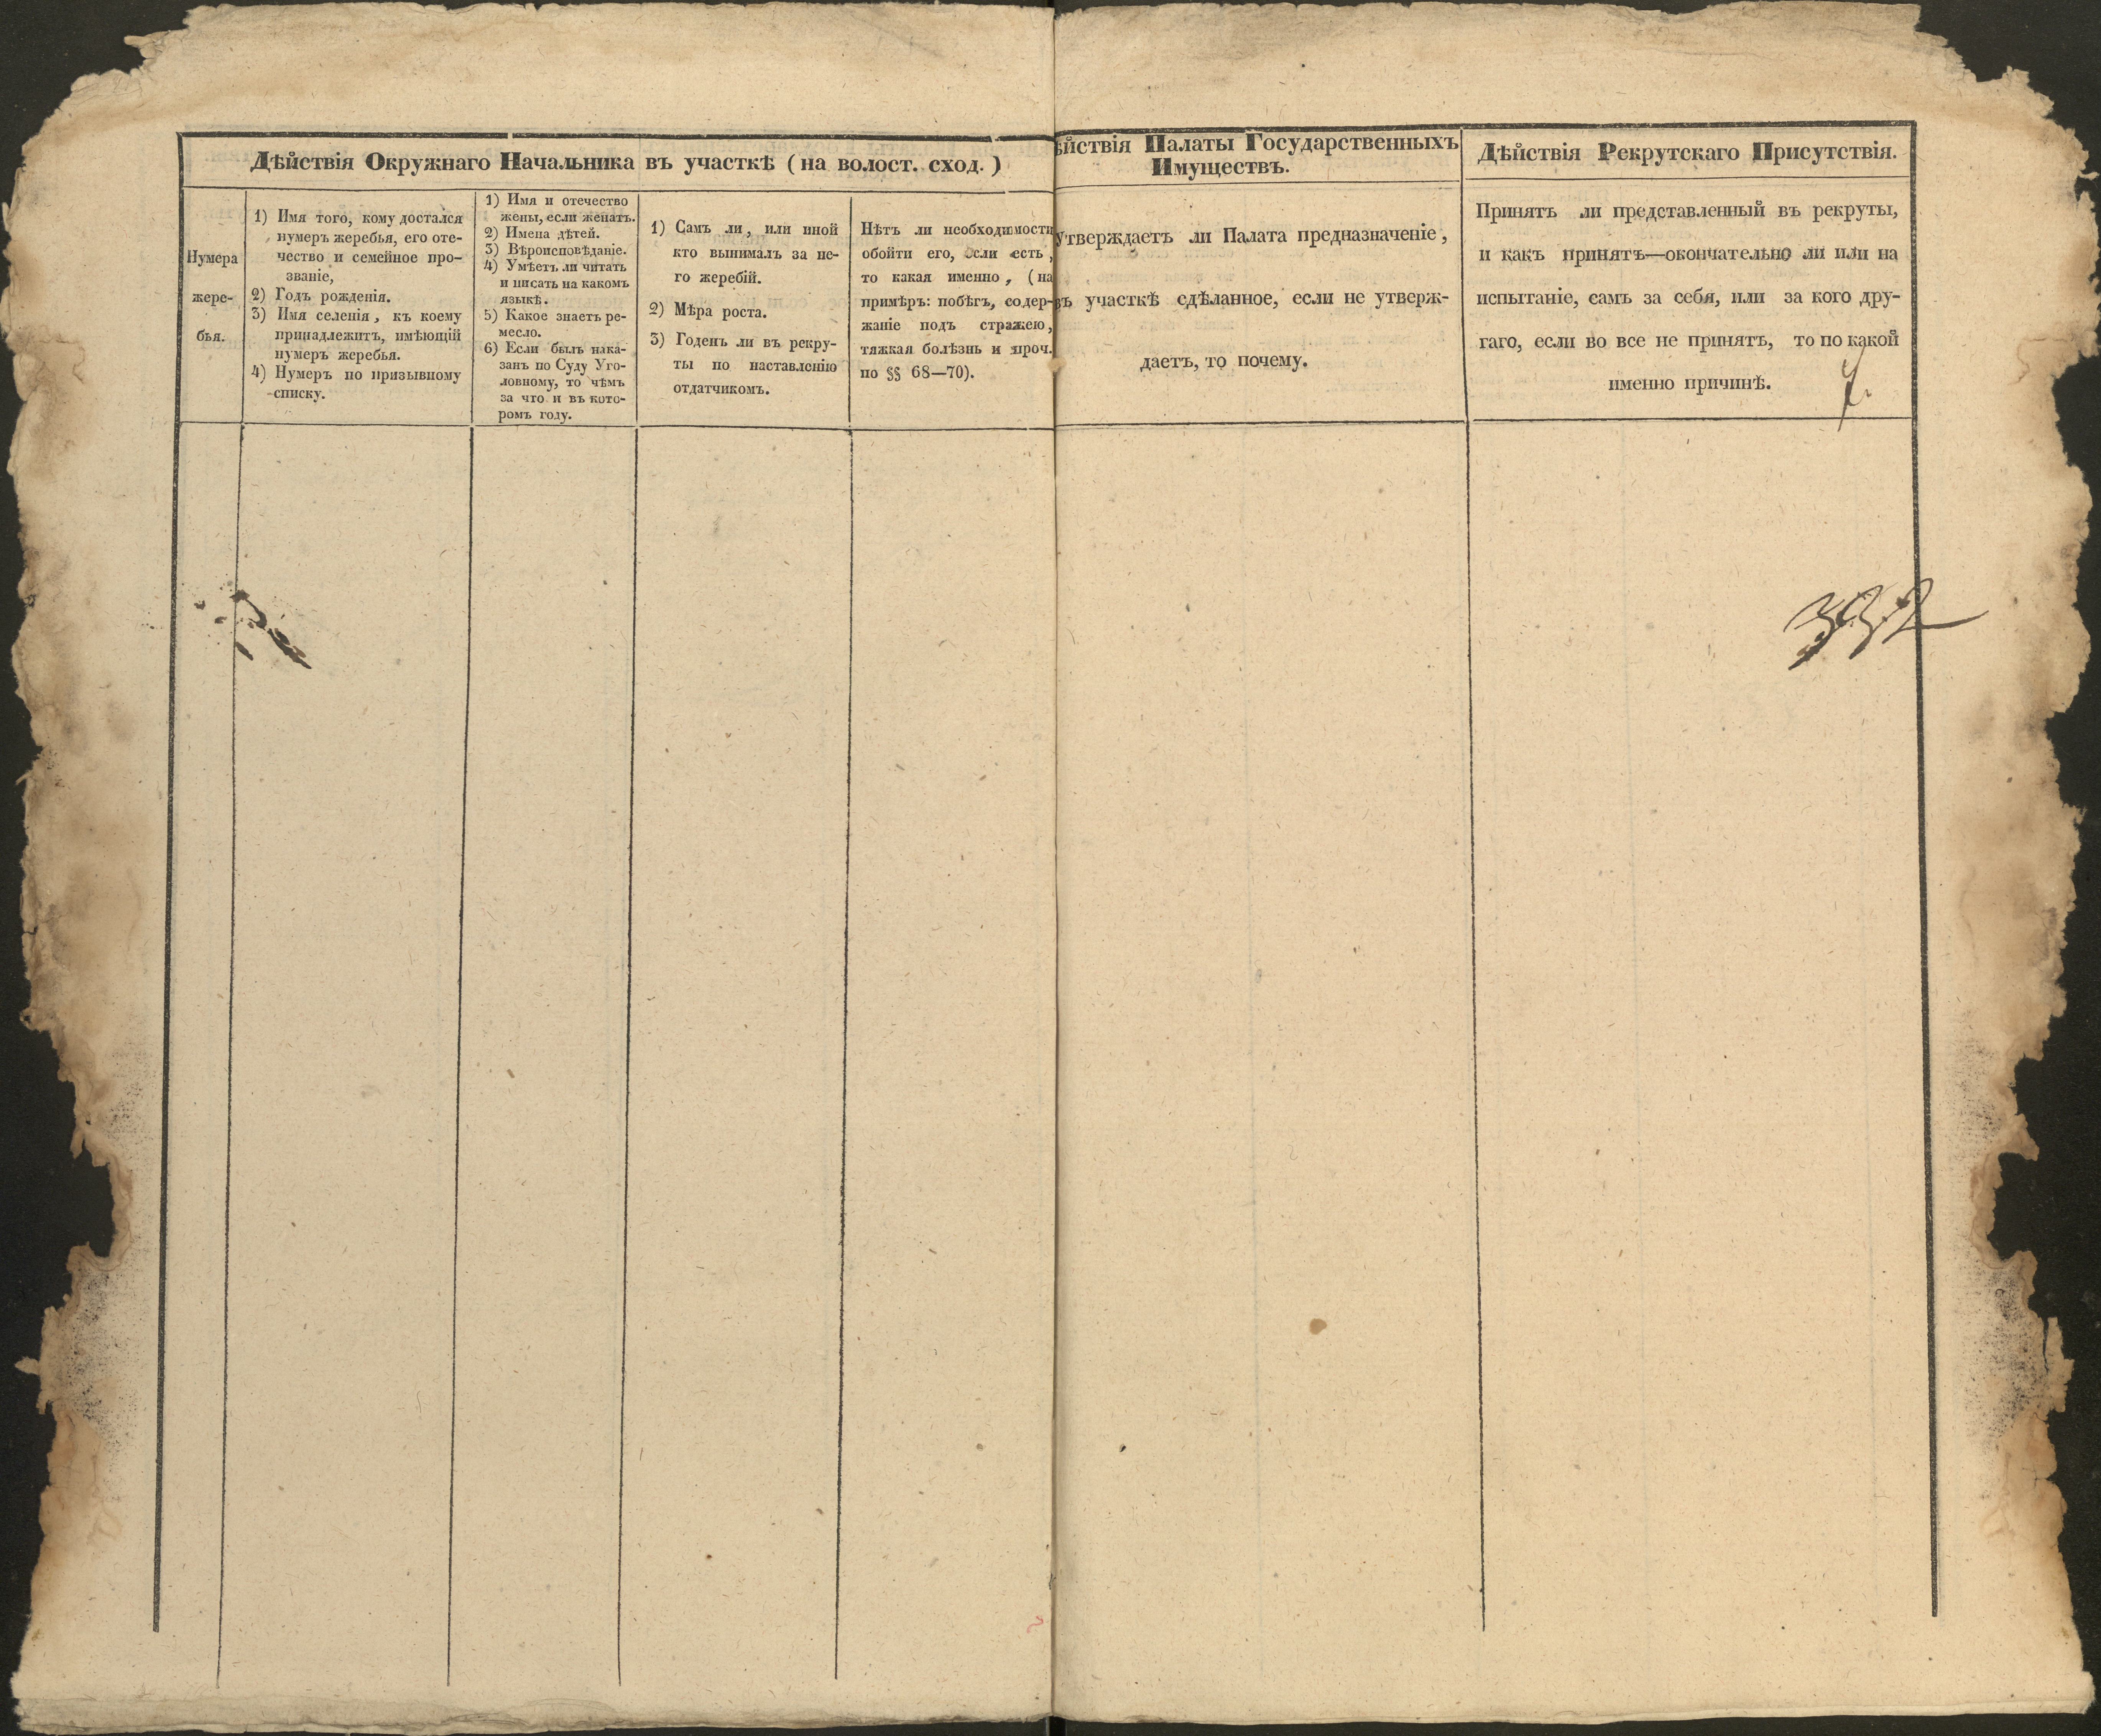 Дѣйствія Окружнаго Начальника въ участкѣ (на волост. сход.)
Нумера
жере-
бья.
1) Имя того, кому достался
нумеръ жеребья, его оте-
чество и семейное про-
званіе,
2) Годъ рожденія.
3) Имя селенія, къ коему
принадлежитъ, имѣющій
нумеръ жеребья.
4) Нумеръ по призывному
списку.
1) Имя и отечество
жены, если женатъ.
2) Имена дѣтей.
3) Вѣроисповѣданіе.
4) Умѣетъ ли читать
и писать на какомъ
языкѣ.
5) Какое знаетъ ре-
месло.
6) Если былъ нака-
занъ по Суду Уго-
ловному, то чѣмъ
за что и въ кото-
ромъ году.
1) Самъ ли, или иной
кто вынималъ за не-
го жеребій.
2) Мѣра роста.
3) Годенъ ли въ рекру-
ты по наставленію
отдатчикомъ.
Нѣтъ ли необходимости
обойти его, если есть,
то какая именно, (на
примѣръ: побѣгъ, содер-
жаніе подъ стражею,
тяжкая болѣзнь и проч.
по §§ 68—70).
ѣйствія Палаты Государственныхъ
Имуществъ.
Утверждаетъ ли Палата предназначеніе,
въ участкѣ сдѣланное, если не утверж-
даетъ, то почему.
Дѣйствія Рекрутскаго Присутствія.
Принятъ ли представленный въ рекруты,
и какъ принятъ—окончательно ли или на
испытаніе, самъ за себя, или за кого дру-
гаго, если во все не принятъ, то по какой
именно причинѣ.
332